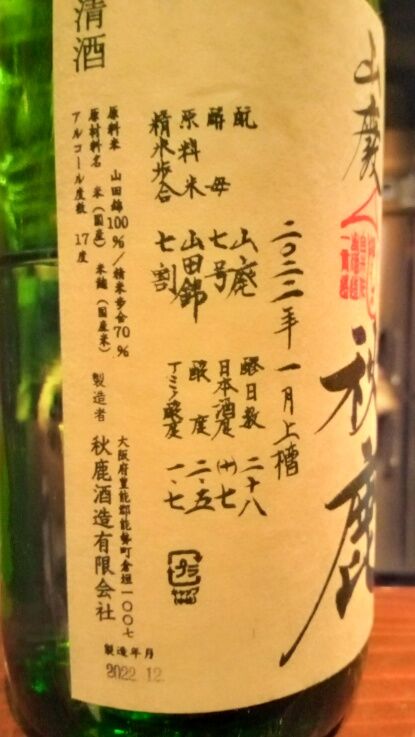 山廃
秋鹿
二〇二二年 一月上槽
酛 山廃 醪日数 二十八
酵母 七号 日本酒度 (+)七
原料米 山田錦 酸度 二・五
精米歩合 七割 アミノ酸度 一・七
プラ
原料米 山田錦100%/精米歩合70%
原材料名 米(国産) 米麹(国産米)
アルコール度数 17度
大阪府豊能郡能勢町倉垣一〇〇七
製造者 秋鹿酒造有限会社
製造年月
2022.12
清酒